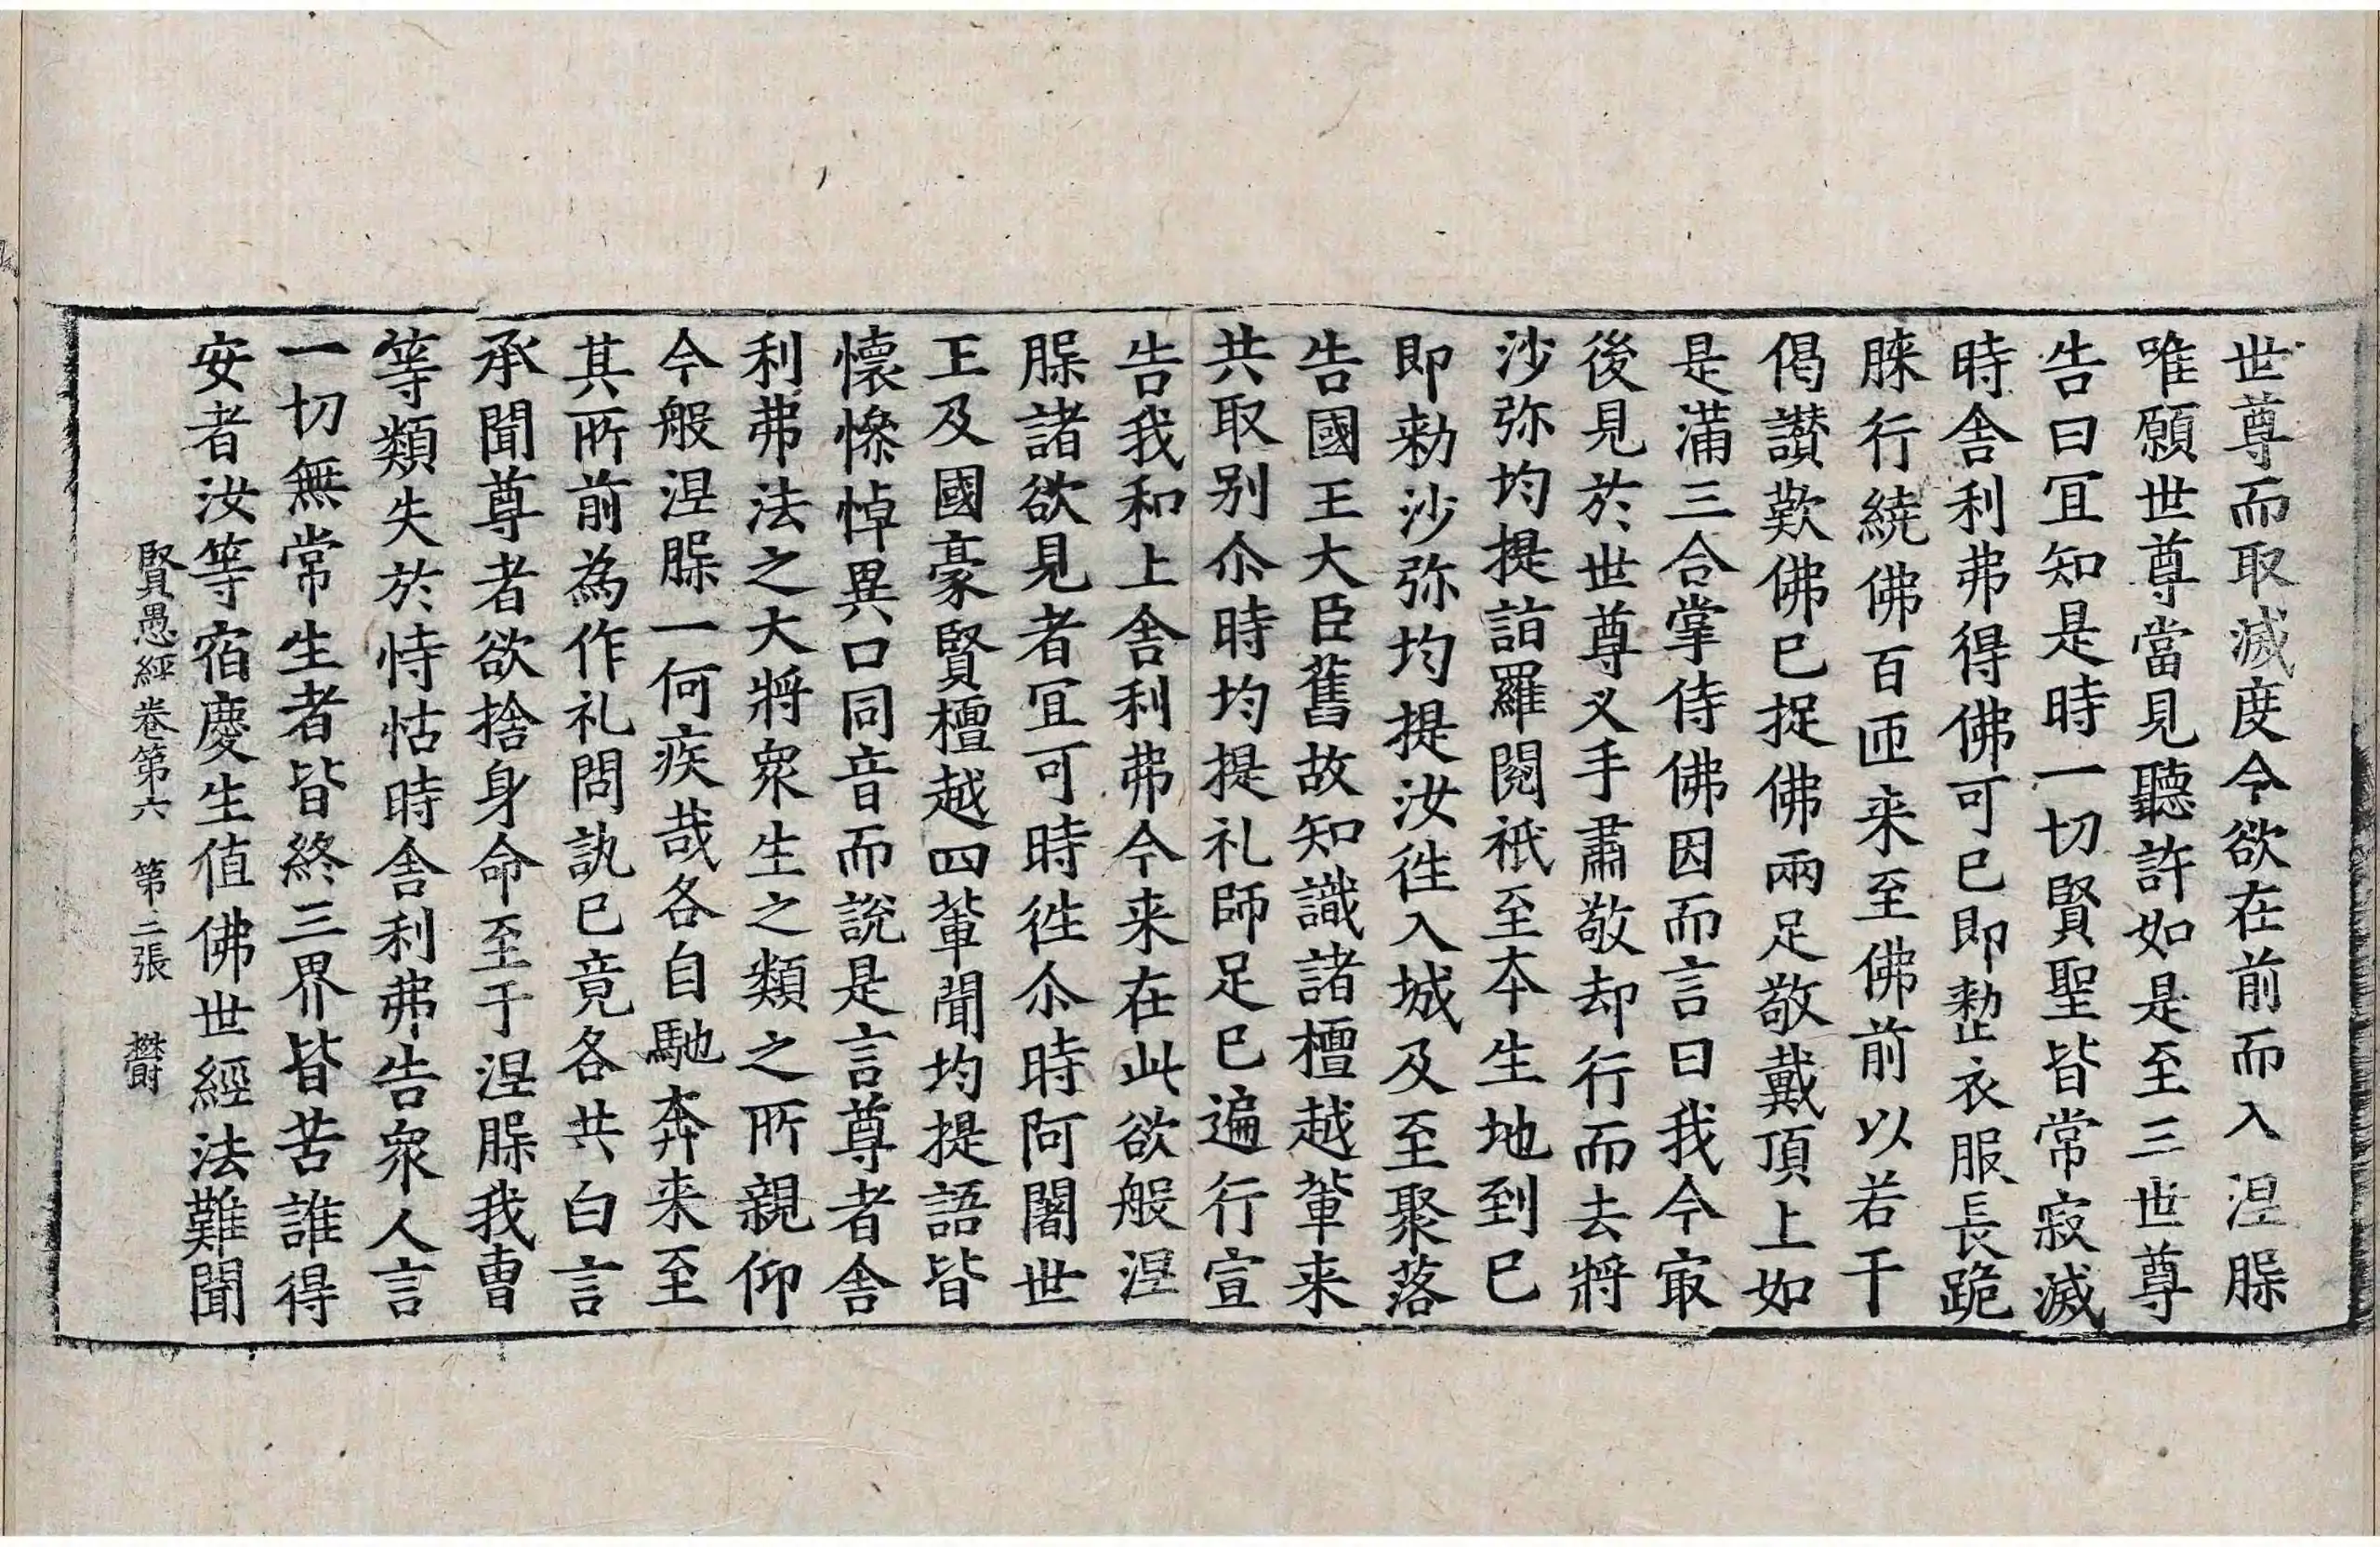 世尊而取滅度今欲在前而入涅槃
唯願世尊當見聽許如是至三世尊
告曰冝知是時一切賢聖皆常寂滅
時舎利弗得佛可已即整衣服長跪
膝行繞佛百匝来至佛前以若干
偈讃歎佛已捉佛兩足敬戴頂上如
是滿三合掌侍佛因而言曰我今㝡
後見於世尊叉手肅敬却行而去將
沙弥均提詣羅閱祇至本生地到已
即勑沙弥均提汝徃入城及至聚落
告國王大臣舊故知識諸檀越輩来
共取别尒時均提礼師足已遍行宣
告我和上舎利弗今来在此欲般涅
槃諸欲見者冝可時徃尒時阿闍世
王及國豪賢檀越四輩聞均提語皆
懷慘悼異口同音而說是言尊者舎
利弗法之大將衆生之類之所親仰
今般涅槃一何疾哉各自馳奔来至
其所前為作礼問訊已竟各共白言
承聞尊者欲捨身命至于涅槃我曹
等類失於恃怙時舎利弗告衆人言
一切無常生者皆終三界皆苦誰得
安者汝等宿慶生值佛世經法難聞
賢愚經卷第六 第二張 欝